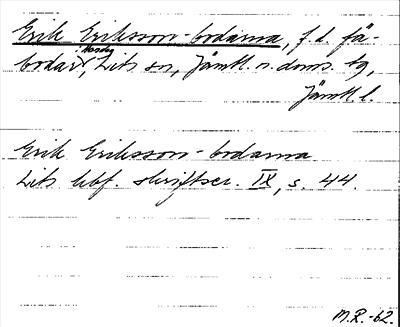 Erik Eriksson-bodarna, f.d. fä-
bodar i Hardeg, Lits sn, Jämtl. n. doms. tg,
Jämtl. l.
Erik Eriksson-bodarna
Lits hbf. skriftser. IX, s. 44.
M.R.-62.